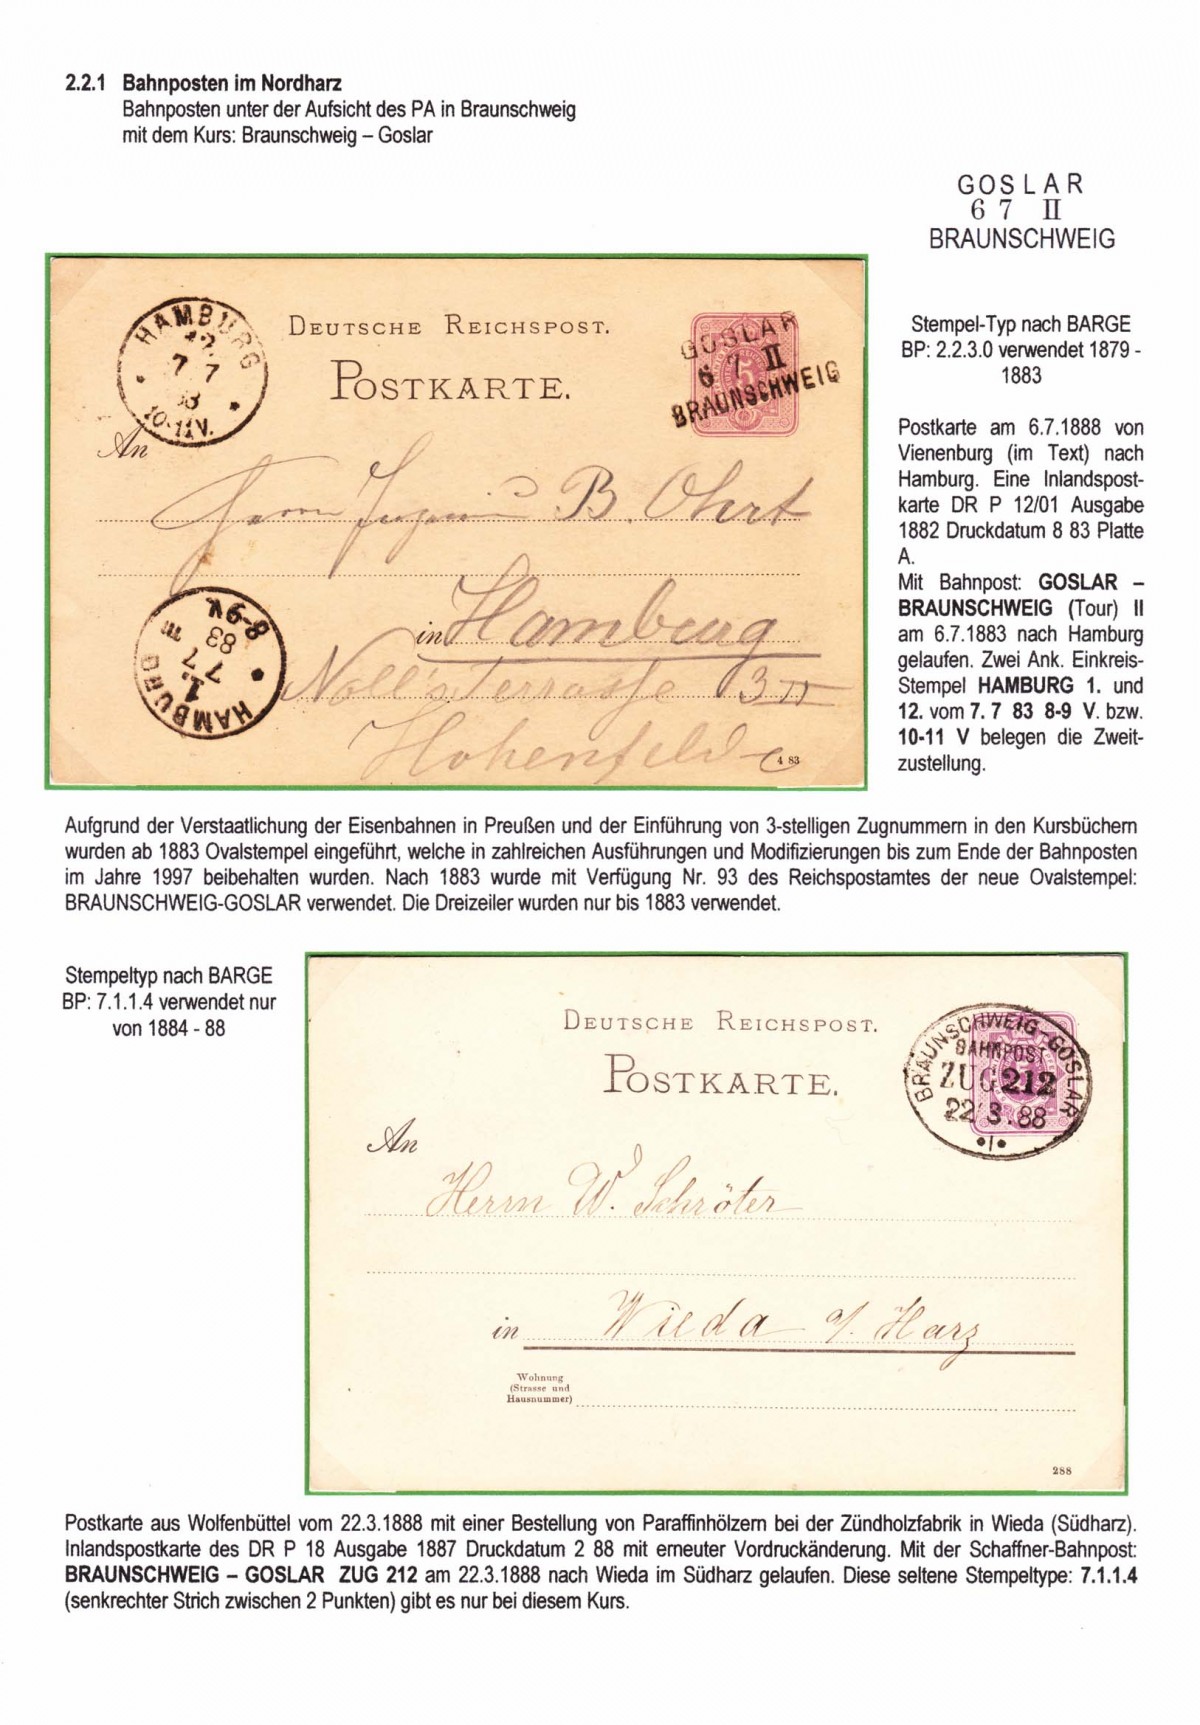 2.2.1 Bahnposten im Nordharz
Bahnposten unter der Aufsicht des PA in Braunschweig
mit dem Kurs: Braunschweig – Goslar
GOSLAR
6 7 II
BRAUNSCHWEIG
HAMBURG
12.
7 7
83
10-11V.
DEUTSCHE REICHSPOST.
POSTKARTE.
GOSLAR
6 7 II
BRAUNSCHWEIG
An
Herrn B. Ohrt
in Hamburg
Noll's Terrasse 3 II
Hohenfelde
HAMBURG
1.
7 7
83
8-9V.
4 83
Stempel-Typ nach BARGE
BP: 2.2.3.0 verwendet 1879 -
1883
Postkarte am 6.7.1888 von
Vienenburg (im Text) nach
Hamburg. Eine Inlandspost-
karte DR P 12/01 Ausgabe
1882 Druckdatum 8 83 Platte
A.
Mit Bahnpost: GOSLAR –
BRAUNSCHWEIG (Tour) II
am 6.7.1883 nach Hamburg
gelaufen. Zwei Ank. Einkreis-
Stempel HAMBURG 1. und
12. vom 7. 7 83 8-9 V. bzw.
10-11 V belegen die Zweit-
zustellung.
Aufgrund der Verstaatlichung der Eisenbahnen in Preußen und der Einführung von 3-stelligen Zugnummern in den Kursbüchern
wurden ab 1883 Ovalstempel eingeführt, welche in zahlreichen Ausführungen und Modifizierungen bis zum Ende der Bahnposten
im Jahre 1997 beibehalten wurden. Nach 1883 wurde mit Verfügung Nr. 93 des Reichspostamtes der neue Ovalstempel:
BRAUNSCHWEIG-GOSLAR verwendet. Die Dreizeiler wurden nur bis 1883 verwendet.
Stempeltyp nach BARGE
BP: 7.1.1.4 verwendet nur
von 1884 - 88
DEUTSCHE REICHSPOST.
POSTKARTE.
BRAUNSCHWEIG-GOSLAR
BAHNPOST
ZUG 212
22.3.88
An
Herrn W. Schröter
in Wieda a/. Harz
Wohnung
(Strasse und
Hausnummer)
288
Postkarte aus Wolfenbüttel vom 22.3.1888 mit einer Bestellung von Paraffinhölzern bei der Zündholzfabrik in Wieda (Südharz).
Inlandspostkarte des DR P 18 Ausgabe 1887 Druckdatum 2 88 mit erneuter Vordruckänderung. Mit der Schaffner-Bahnpost:
BRAUNSCHWEIG – GOSLAR ZUG 212 am 22.3.1888 nach Wieda im Südharz gelaufen. Diese seltene Stempeltype: 7.1.1.4
(senkrechter Strich zwischen 2 Punkten) gibt es nur bei diesem Kurs.